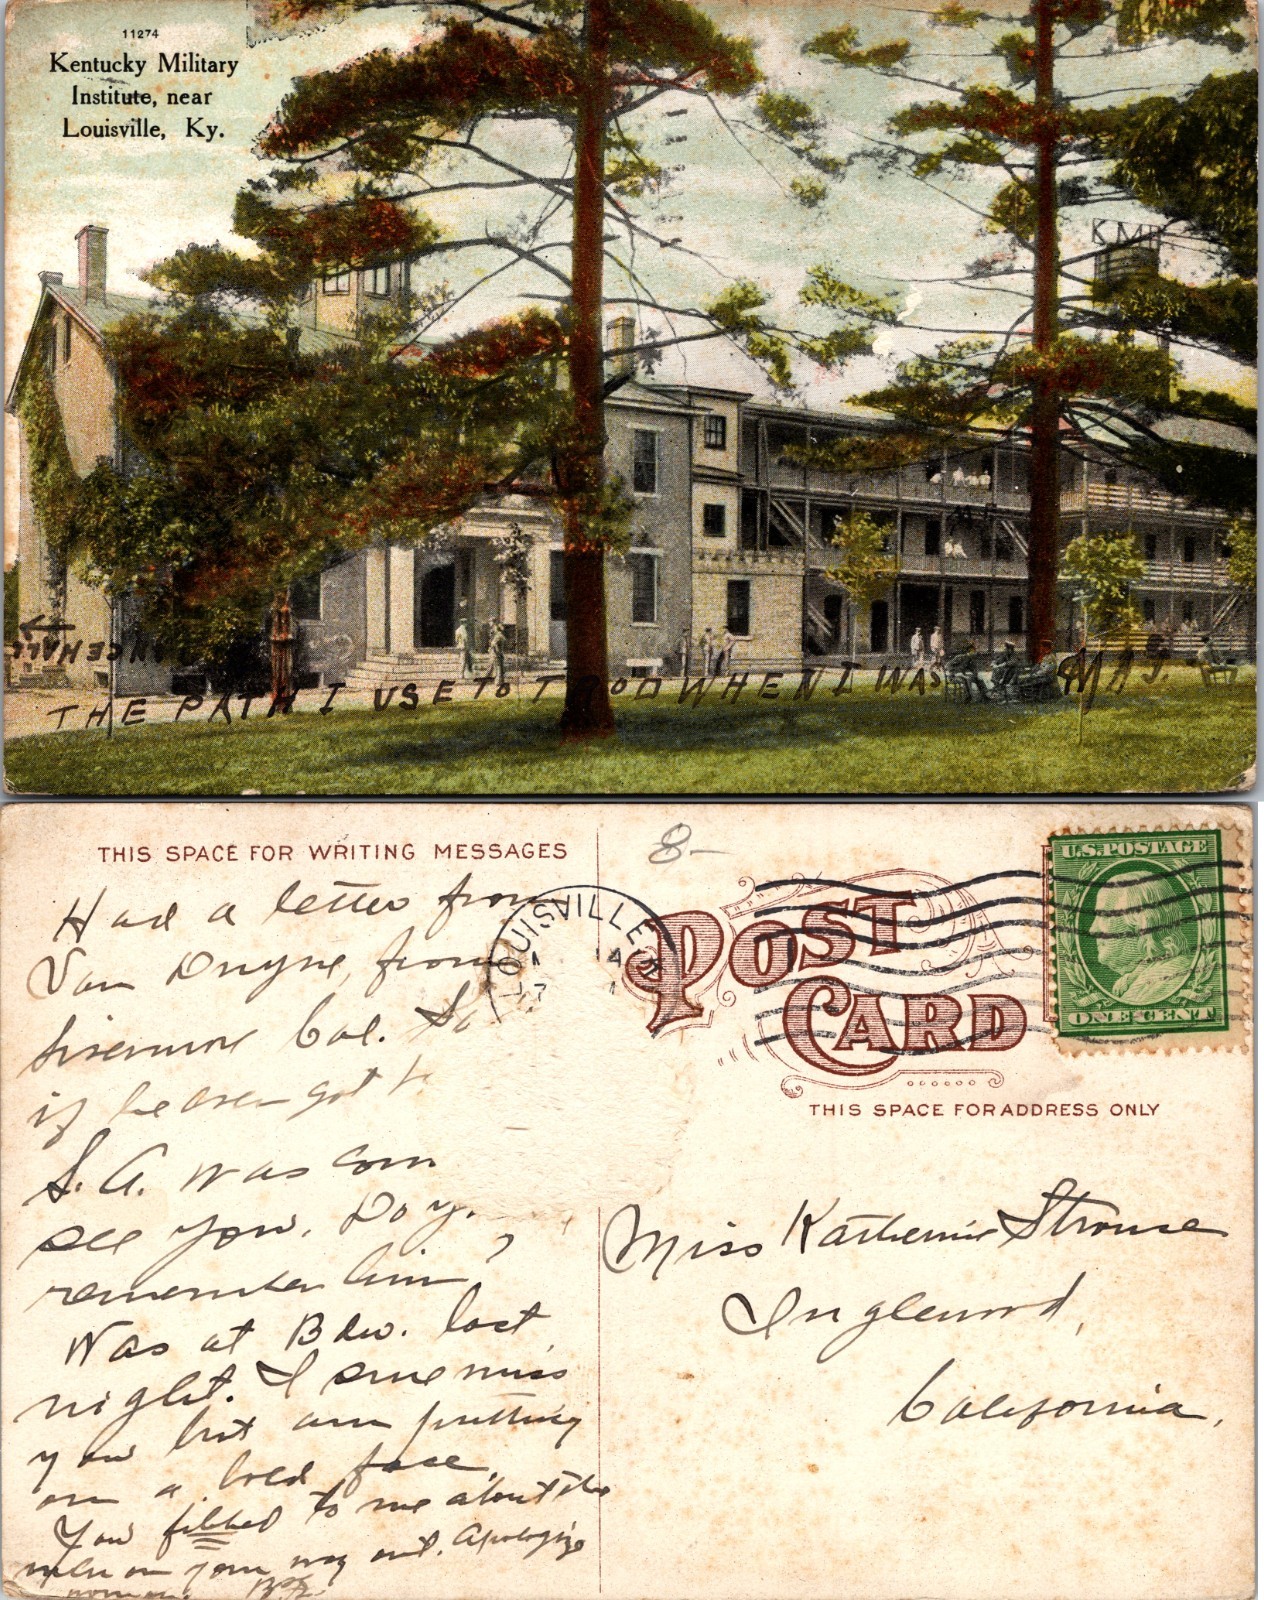 11274
Kentucky Military
Institute, near
Louisville, Ky.
KMI
DANCE HALL
THE PATH I USE TO TROD WHEN I WAS MAJ.
THIS SPACE FOR WRITING MESSAGES
8-
U.S. POSTAGE
ONE CENT
LOUISVILLE, K
POST
CARD
THIS SPACE FOR ADDRESS ONLY
Had a letter from
Van Duyne, from
Livermore Cal. So
if he ever got t
S. A. was com
see you. Do y.
remember him?
Was at Bdw. last
night. I sure miss
you but am putting
on a bold face.
You fibbed to me about the
men on your way out. Apologize
Miss Katherine Strouse
Inglewood,
California,